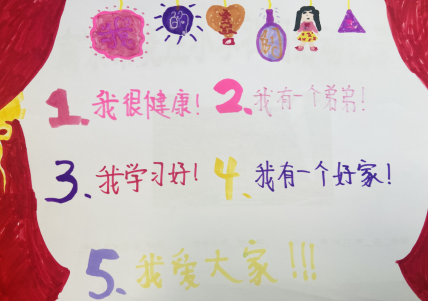 我 的 喜
1. 我很健康! 2. 我有一个弟弟!
3. 我学习好! 4. 我有一个好家!
5. 我爱大家!!!